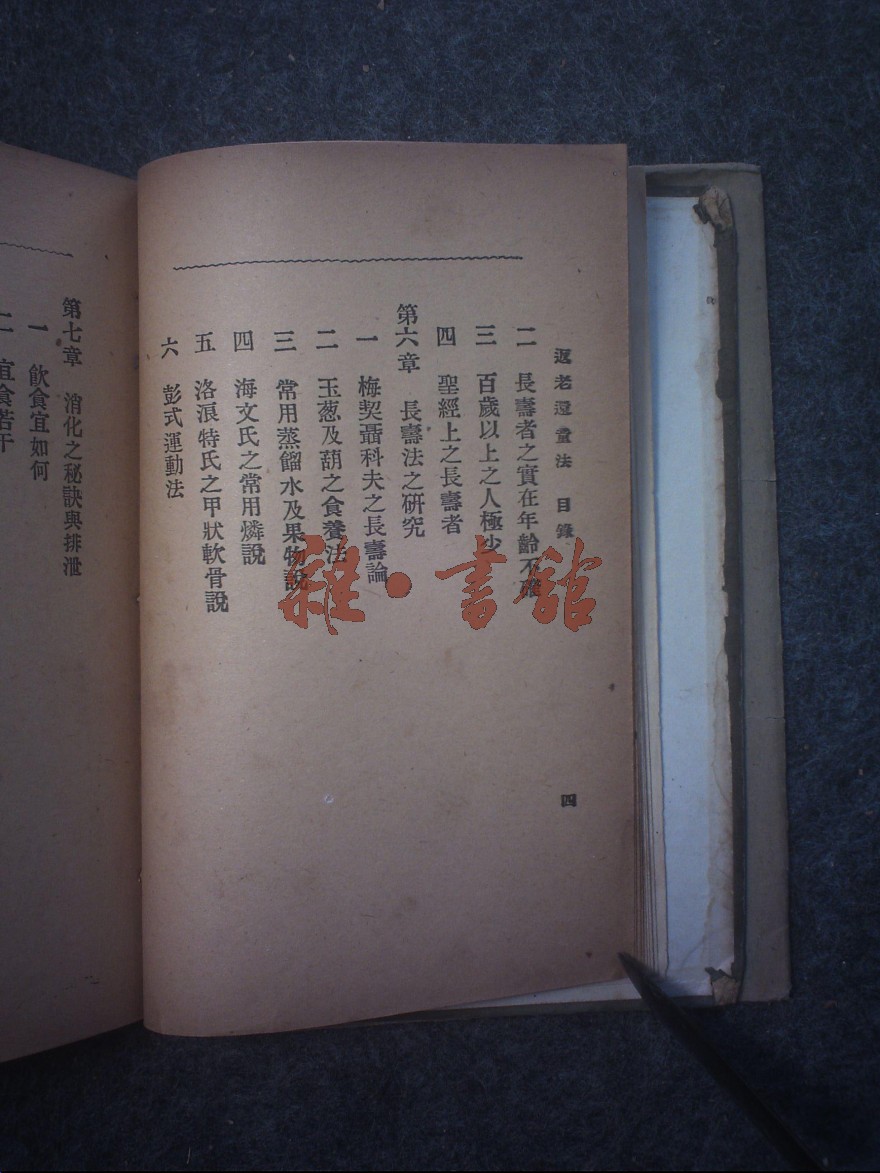 返老還童法　目錄
二　長壽者之實在年齡不確
三　百歲以上之人極少
四　聖經上之長壽者
第六章　長壽法之研究
一　梅契聶科夫之長壽論
二　玉葱及葫之食養法
三　常用蒸餾水及果物說
四　海文氏之常用燐說
五　洛浪特氏之甲狀軟骨說
六　彭式運動法
四
第七章　消化之秘訣與排泄
一　飲食宜如何
二　宜食若干
雜·書館